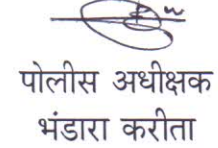 पोलीस अधीक्षक
भंडारा करीता